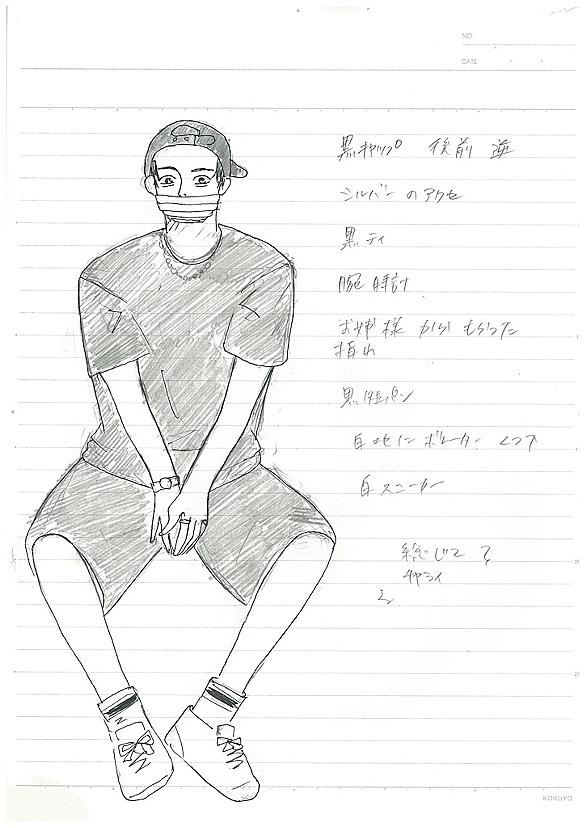 NO.
DATE
黒キャップ 後前 逆
シルバーのアクセ
黒ティ
腕時計
お姉様からもらった
指わ
黒短パン
白地にボーダー くつ下
白スニーカー
総じて
チャライ
KOKUYO